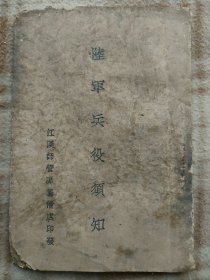 陸軍兵役須知
江漢師管區籌備處印發